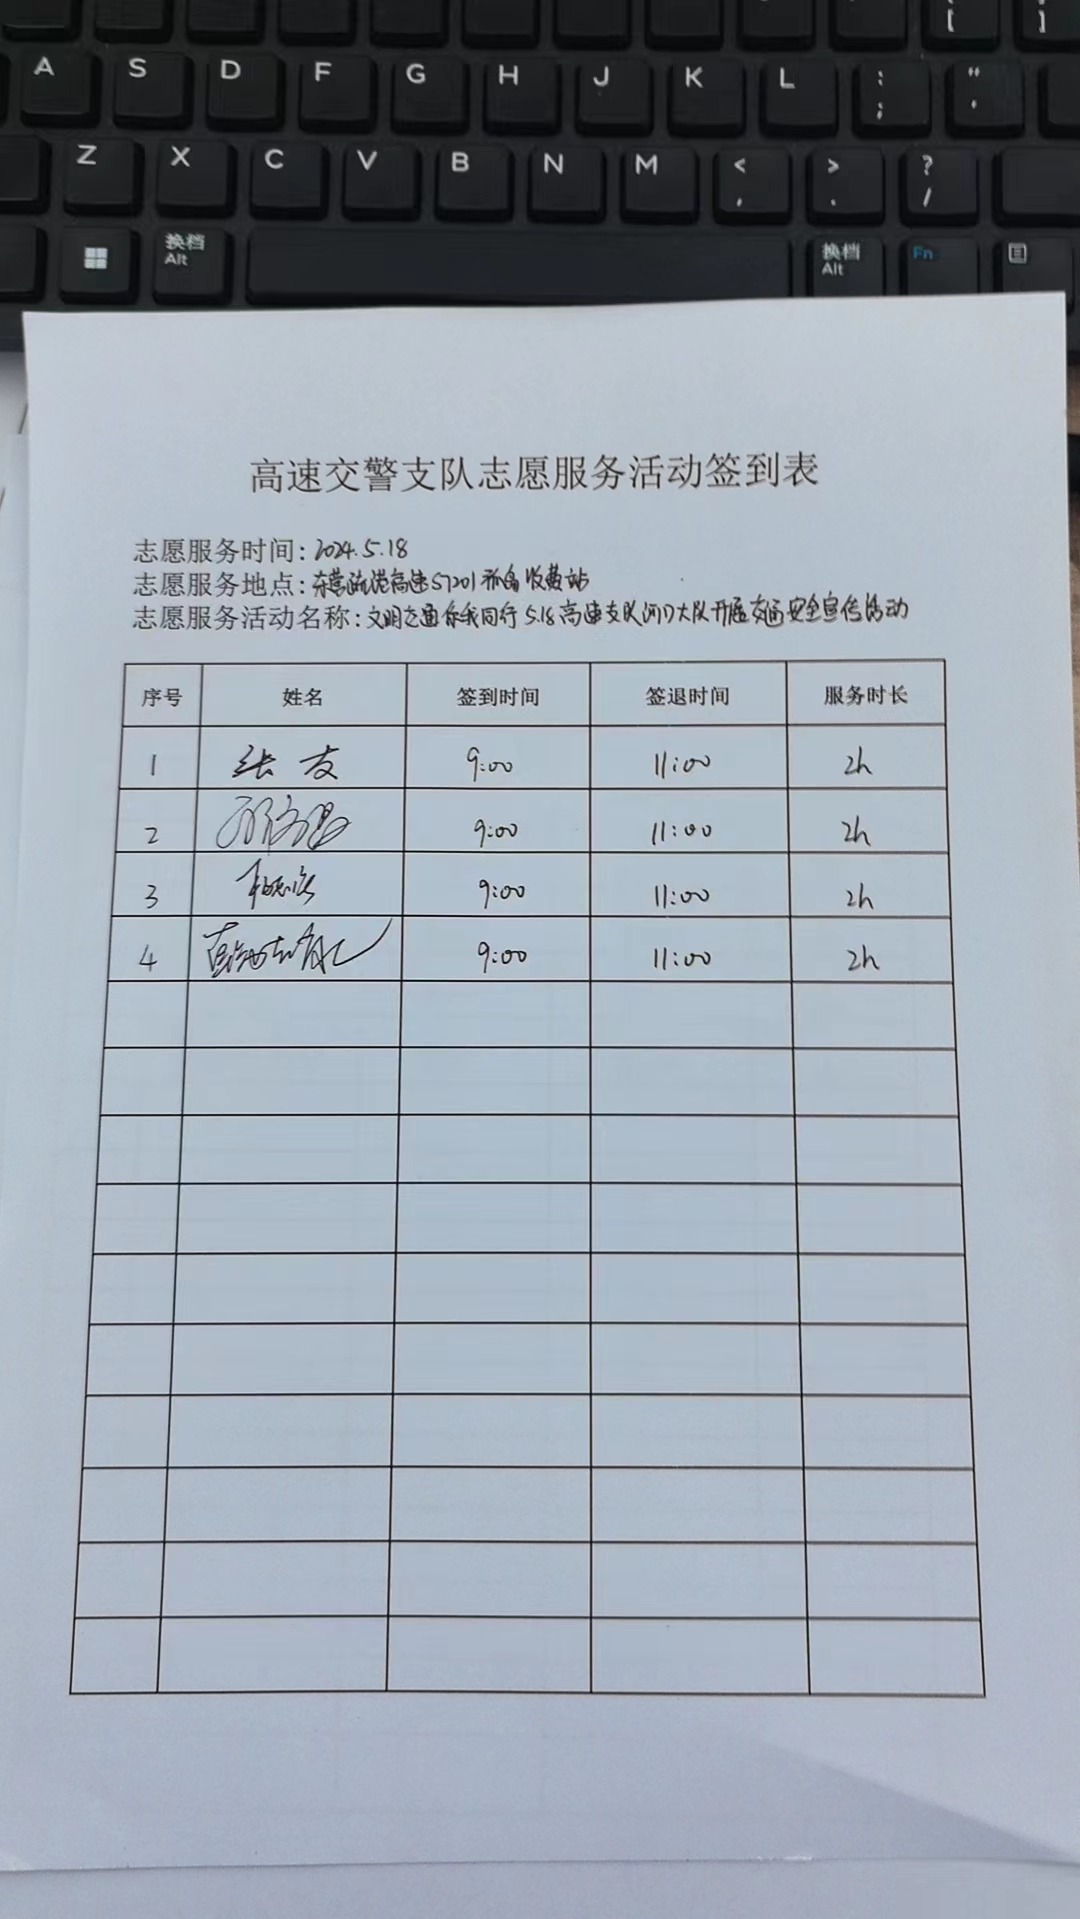 [ ]
A S D F G H J K L : ; " '
Z X C V B N M < , > . ? /
换档 Alt 换档 Alt Fn
高速交警支队志愿服务活动签到表
志愿服务时间:2024.5.18
志愿服务地点:东营疏港高速S7201孤岛收费站
志愿服务活动名称:文明交通你我同行 5.18高速支队河口大队开展交通安全宣传活动
序号 姓名 签到时间 签退时间 服务时长
1 张友 9:00 11:00 2h
2 9:00 11:00 2h
3 9:00 11:00 2h
4 9:00 11:00 2h